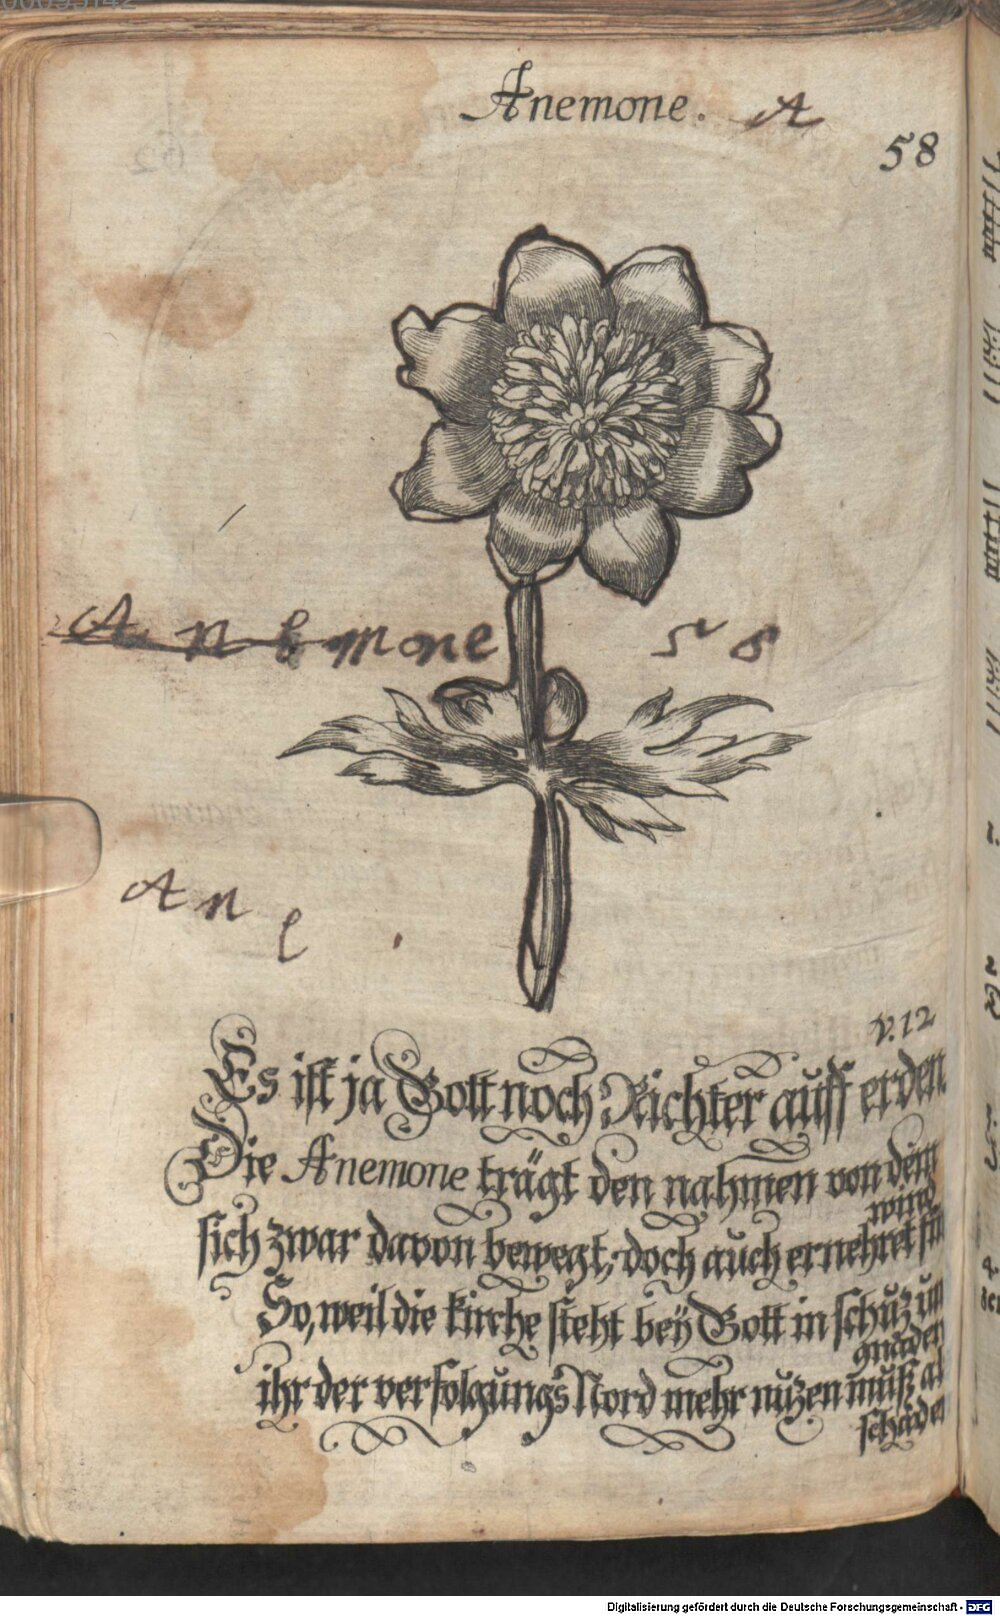 Anemone. A
58
Anemone 58
An
l
v. 12
Es ist ja Gott noch Richter auff erden
Die Anemone trägt den nahmen von dem
wind
sich zwar davon bewegt, doch auch ernehret
So, weil die kirche steht beÿ Gott in schuz
gnaden
ihr der verfolgungs Nord mehr nuzen muß
Digitalisierung gefördert durch die Deutsche Forschungsgemeinschaft - DFG